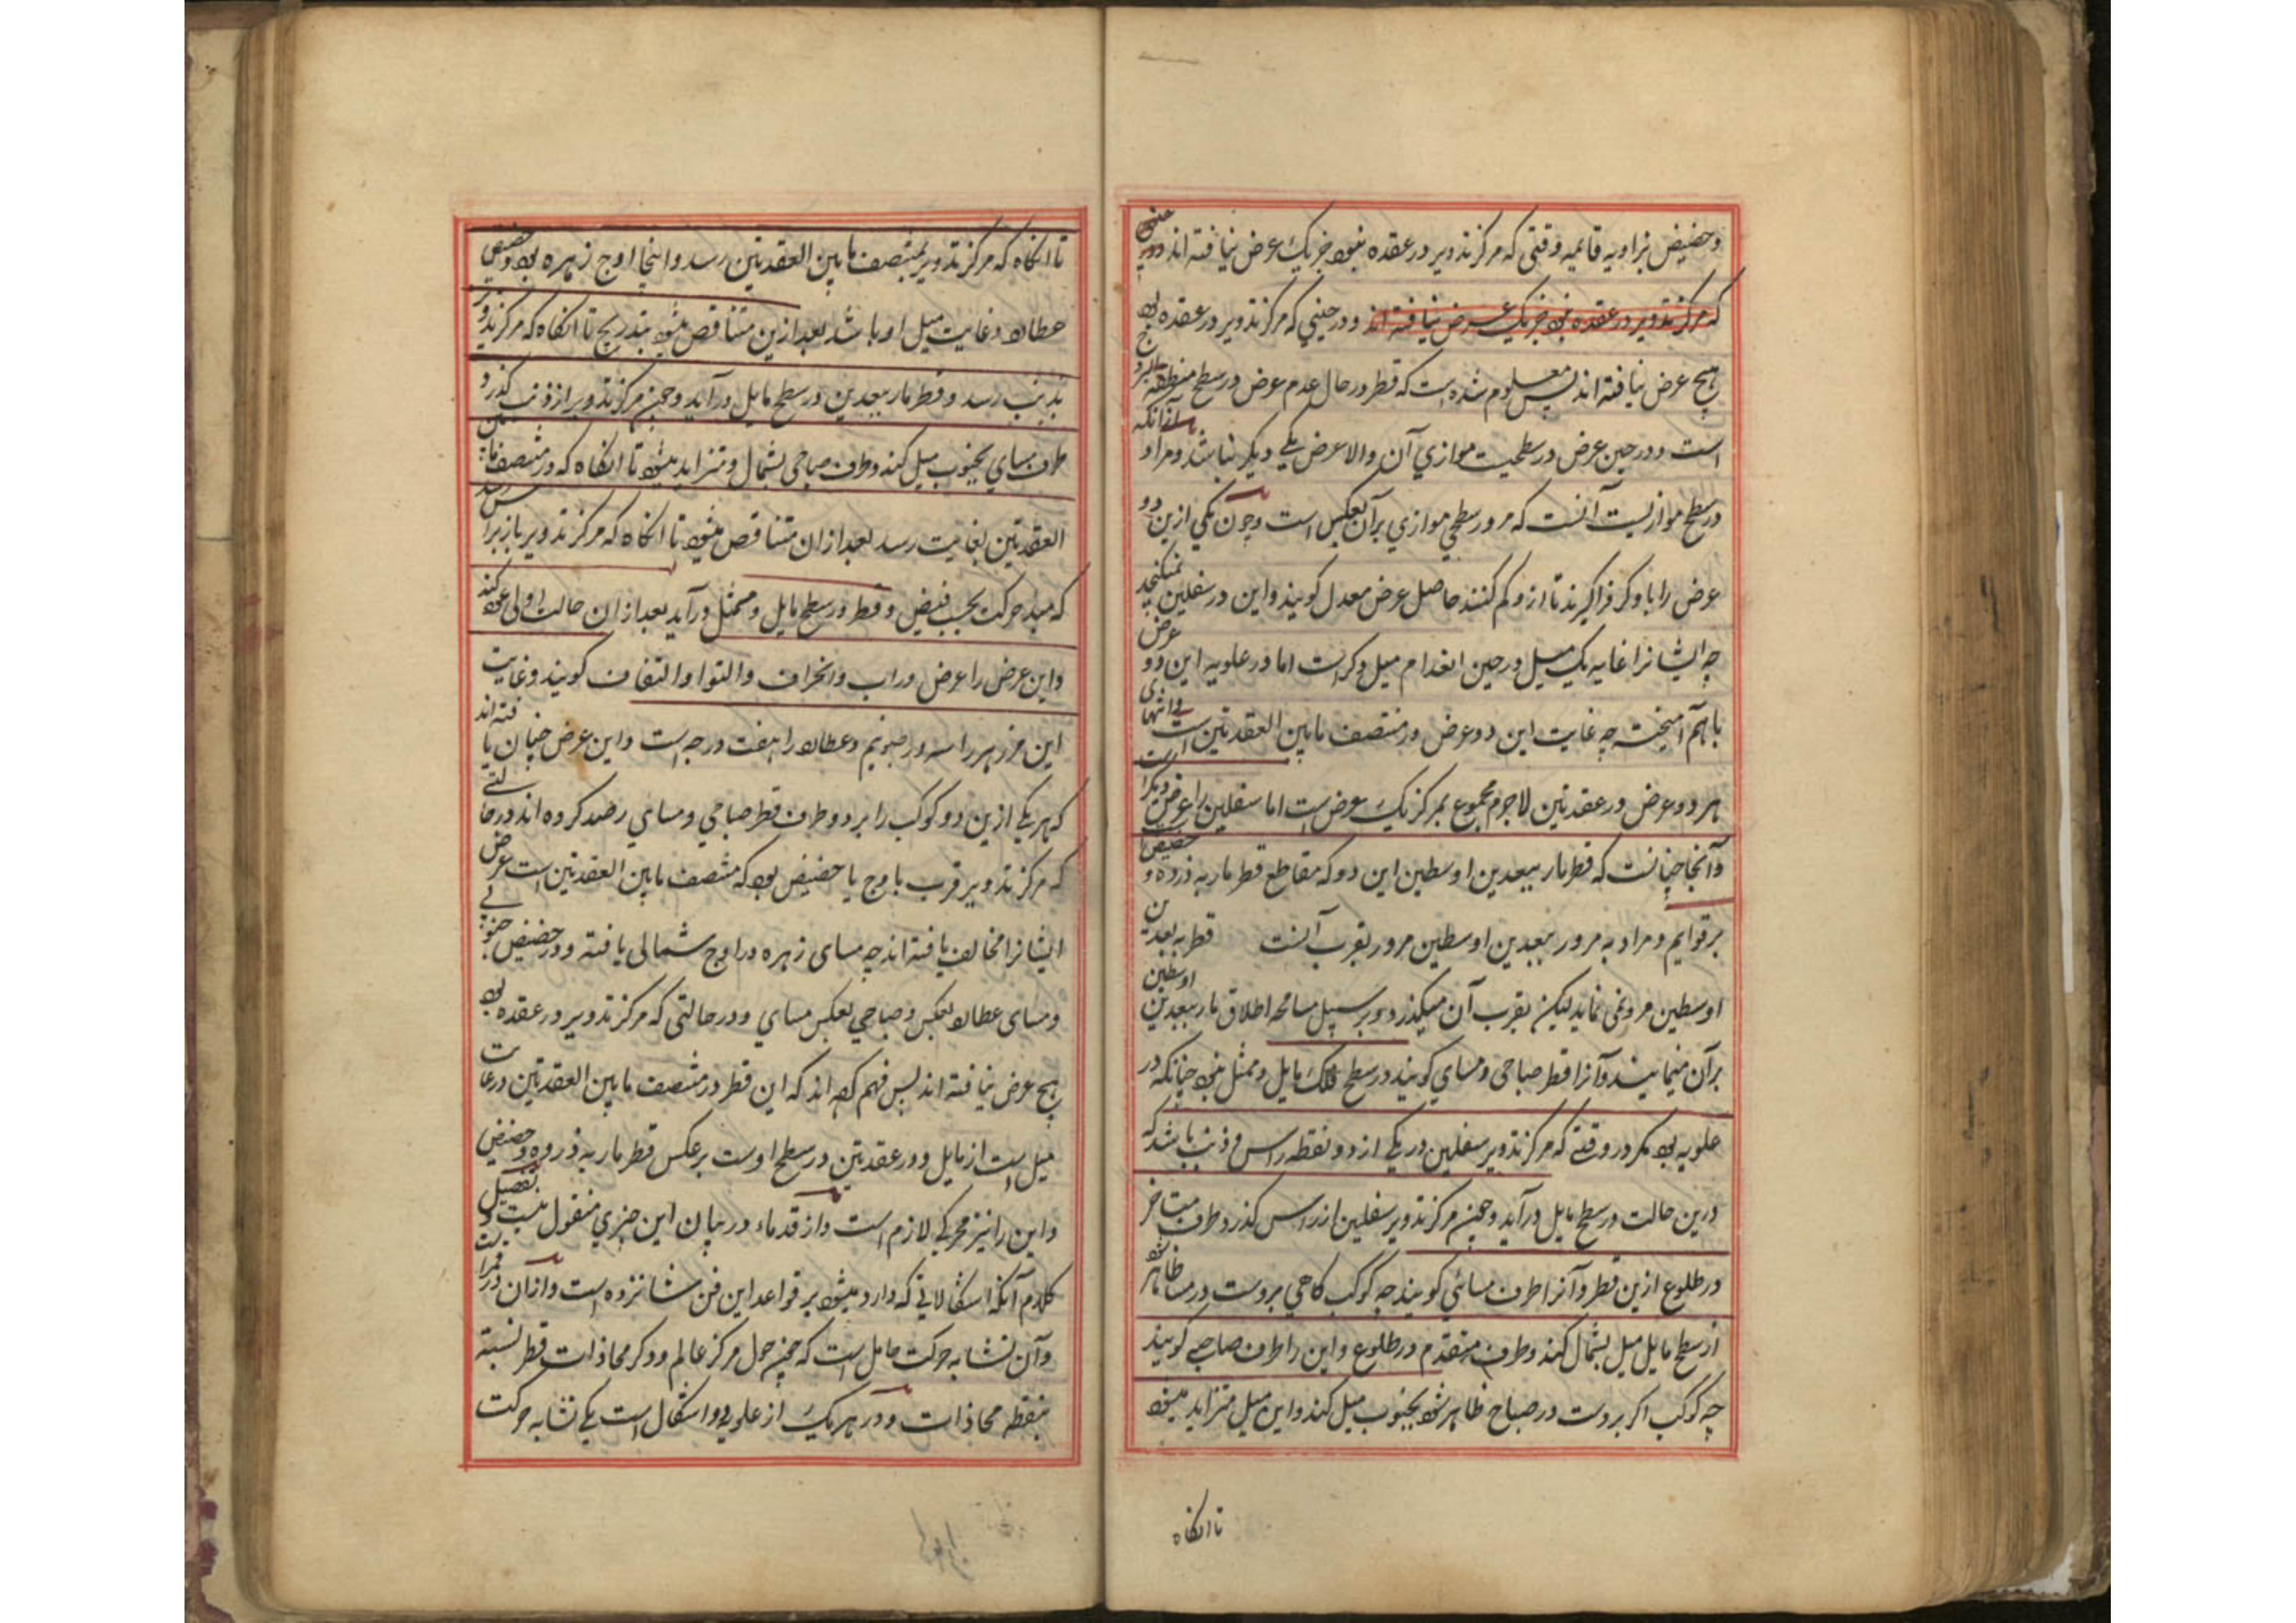 وحضیض بزاویه قائمیه وقتی که مرکز تدویر در عقده نبود جز یک عرض نیافته اند
که مرکز تدویر در عقده بود جز یک عرض نیافته اند ودر حینی که مرکز تدویر در عقده بود
هیچ عرض نیافته اند پس معلوم شده است که قطر در حال عدم عرض در سطح منطقة البروج
است ودر حین عرض در سطحیت موازی آن والا عرض یکی دیگر نباشد ومراد از آنکه
در سطح موازیست آنست که مرور سطحی موازی بر آن بعکس است وچون یکی ازین دو
عرض را با دکر فراکیرند تا ازو کم کنند حاصل عرض معدل کویند واین در سفلین نمیکنجد
چه ایشانرا غایه یک میل در حین انعدام میل دکرست اما در علویه این دو عرض
باهم آمیخته چه غایت این دو عرض در منتصف مابین العقدتین است وانتهای
هر دو عرض در عقدتین لاجرم مجموع بمرکز یک عرض است اما سفلین را عرض دیکر است
وآنجا چنانست که قطر مار ببعدین اوسطین این دو که مقاطع قطر مار به ذروه وحضیض
بر قوایم ومراد به مرور ببعدین اوسطین مرور بقرب آنست قطر به بعدین
اوسطین مرور نمی نماید لیکن بقرب آن میکذرد وبر سبیل مسامحه اطلاق مار ببعدین اوسطین
برآن مینمایند وآنرا قطر صباحی ومسای کویند در سطح فلک مایل وممثل نبود چنانکه در
علویه بود مکر در وقتی که مرکز تدویر سفلین در یکی از دو نقطه راس وذنب باشد که
درین حالت در سطح مایل درآید وچون مرکز تدویر سفلین از راس کذرد وطرف متاخر
در طلوع ازین قطر وآنرا طرف مسائی کویند چه کوکب کاهی بروست در مسا ظاهر شود
از سطح مایل میل بشمال کند وطرف متقدم در طلوع واین را طرف صباحی کویند
چه کوکب اکر بروست در صباح ظاهر شود بجنوب میل کند واین میل متزاید میشود
تا انکاه
تا انکاه که مرکز تدویر بمنتصف مابین العقدتین رسد واینجا اوج زهره بود وحضیض
عطارد وغایت میل او باشد بعد ازین متناقص میشود بتدریج تا انکاه که مرکز تدویر
بذنب رسد وقطر مار ببعدین در سطح مایل درآید وچون مرکز تدویر از ذنب کذرد
طرف مسای بجنوب میل کند وطرف صباحی بشمال ومتزاید میشود تا انکاه که در منتصف مابین
العقدتین بغایت رسد بعد ازان متناقص میشود تا انکاه که مرکز تدویر باز براس رسد
که مبدا حرکت بحسب فیض وقطر در سطح مایل وممثل درآید بعد ازان حالت اولی عود کند
واین عرض را عرض وراب وانحراف والتوا والتفاف کویند وغایت
این مر زهره را سه درجه ونیم وعطارد را هفت درجه است واین عرض چنان یافته اند
که هر یکی ازین دو کوکب را بر دو طرف قطر صباحی ومسای رصد کرده اند در حالتی
که مرکز تدویر قرب باوج یا حضیض بود که منتصف مابین العقدتین است عرض
ایشانرا مخالف یافته اند چه مسای زهره در اوج شمالی یافته ودر حضیض جنوبی
ومسای عطارد بعکس وصباحی بعکس مسای ودر حالتی که مرکز تدویر در عقده بود
هیچ عرض نیافته اند پس فهم کرده اند که این قطر در منتصف مابین العقدتین در غایت
میل است از مایل ودر عقدتین در سطح اوست بر عکس قطر مار به ذروه وحضیض
واین را نیز محرکی لازم است واز قدماء در بیان این چیزی منقول نیست وتفصیل
کلام آنکه اشکالاتی که وارد میشود بر قواعد این فن شانزده است وازان در قمر است
وآن تشابه حرکت حامل است که چون حول مرکز عالم ودکر محاذات قطر نسبة
بنقطه محاذات ودر هر یک از علویه دو اشکال است یکی تشابه حرکت